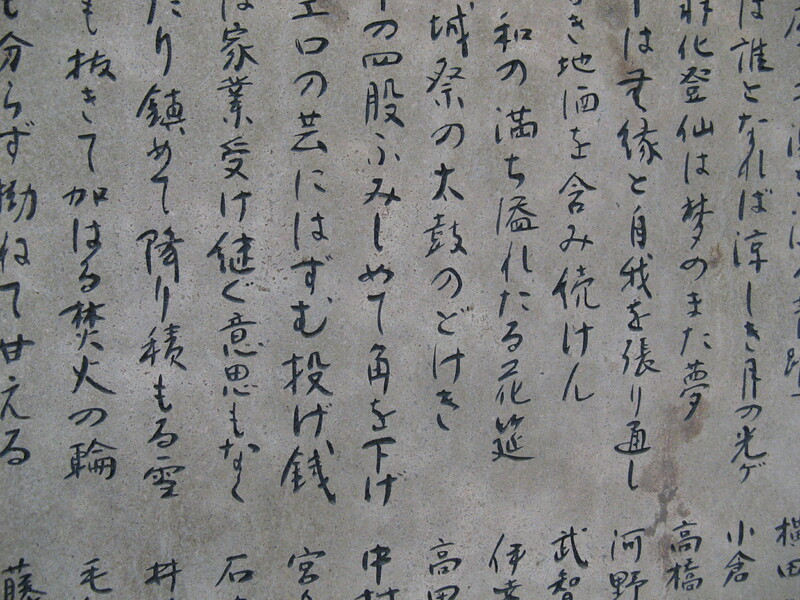 横田
は誰となれば涼しき月の光ゲ 小倉
羽化登仙は夢のまた夢 高橋
は無縁と自我を張り通し 河野
き地酒を含み続けん 武智
和の満ち溢れたる花筵 伊
城祭の太鼓のどけき 高田
の四股ふみしめて角を下げ 中村
エロの芸にはずむ投げ銭 宮
は家業受け継ぐ意思もなく 石
たり鎮めて降り積もる雪 井
も抜きて加はる焚火の輪 毛
も分らず拗ねて甘える 藤